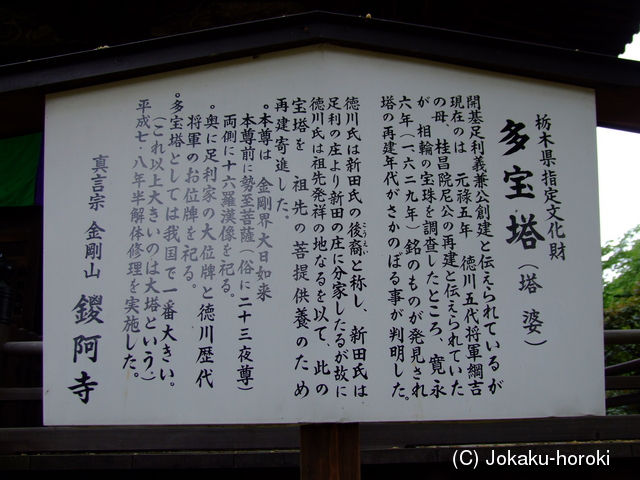 栃木県指定文化財
多宝塔(塔婆)
開基足利義兼公創建と伝えられているが
現在のは 元禄五年 徳川五代将軍綱吉
の母、桂昌院尼公の再建と伝えられていた
が 相輪の宝珠を調査したところ、寛永
六年(一六二九年)銘のものが発見され
塔の再建年代がさかのぼる事が判明した。
徳川氏は新田氏の後裔と称し、新田氏は
こうえい
足利の庄より新田の庄に分家したるが故に
徳川氏は祖先発祥の地なるを以て、此の
宝塔を 祖先の菩提供養のため
再建寄進した。
。本尊は 金剛界大日如来
本尊前に勢至菩薩(俗に二十三夜尊)
両側に十六羅漢像を祀る。
。奥に足利家の大位牌と徳川歴代
将軍のお位牌を祀る。
。多宝塔としては我国で一番大きい。
(これ以上大きいのは大塔という)
平成七、八年半解体修理を実施した。
真言宗 金剛山 鑁阿寺
(C) Jokaku-horoki